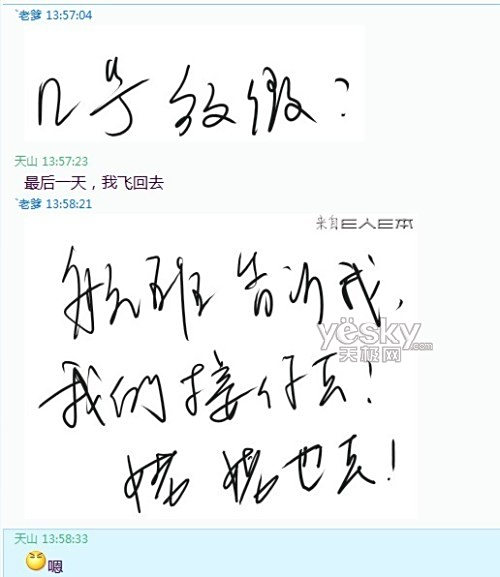 老爹 13:57:04
几号放假？
天山 13:57:23
最后一天，我飞回去
老爹 13:58:21
来自E人E本
航班告诉我，
yesky
天极网.com
我们接你去！
姥姥也去！
天山 13:58:33
嗯